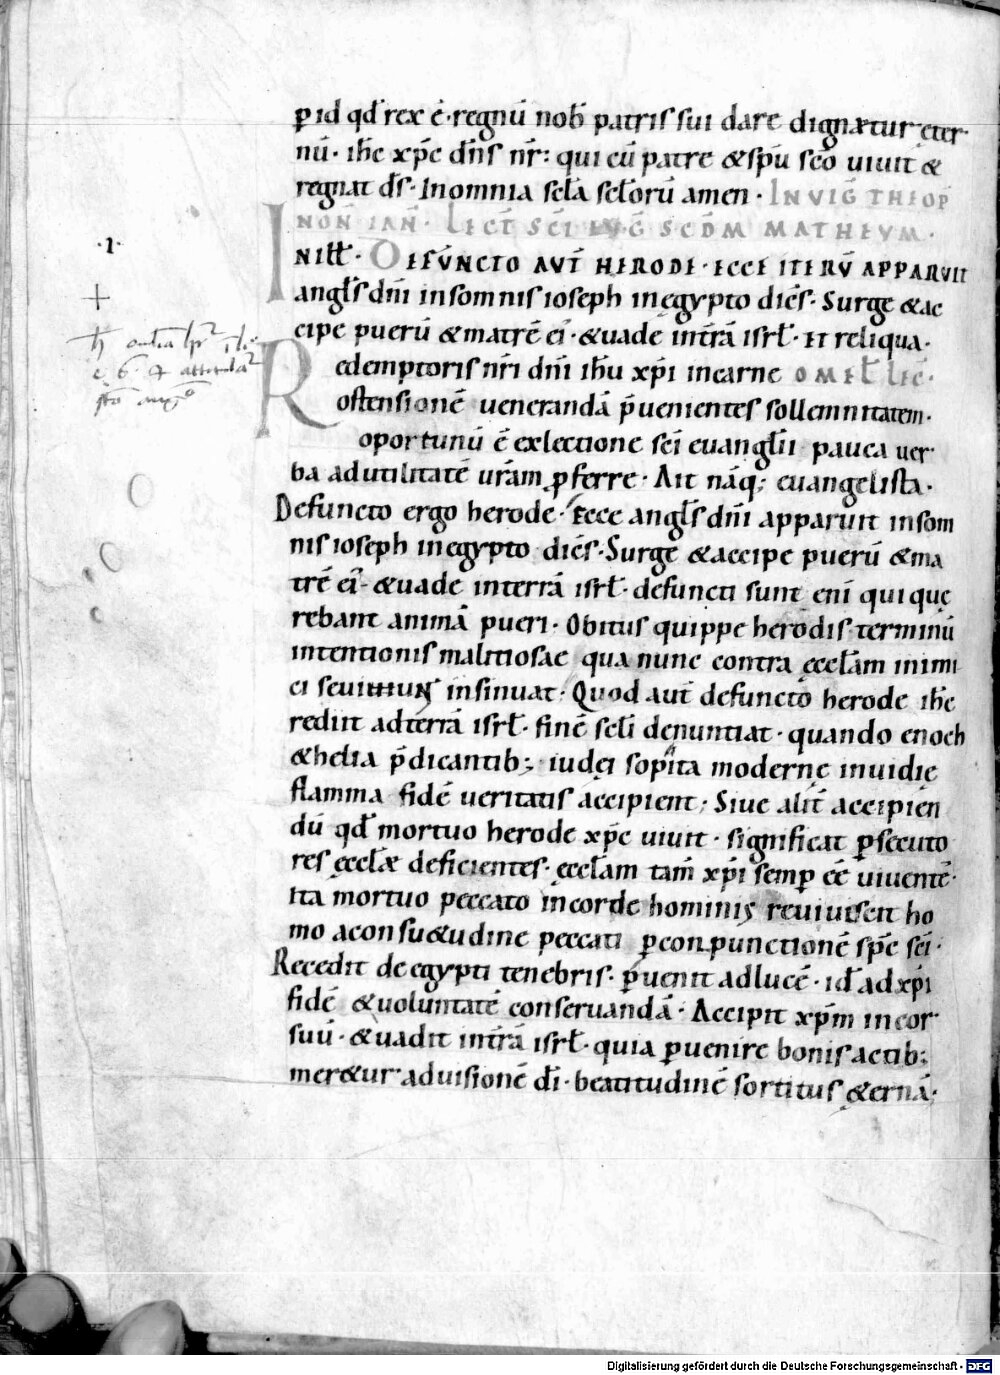 ꝑ id qd̄ rex ē· regnū nob̄ patris sui dare dignætur ęter
nū· ih̄c xp̄c dn̄s nr̄: qui cū patre &sp̄u sc̄o uiuit &
regnat d̄s· Inomnia scl̄a scl̄orū amen· IN VIG̅ THEOP̅
NON̅ IAN̅· LECT̅ SC̅I EVG̅ SCD̅M MATHEVM·
·1·
IN ILL̅· DEFŪNCTO AVT̅ HERODE· ECCE ITERV̄ APPARVIT
angl̄s dn̄i insomnis ioseph inęgypto dicēs· Surge &ac
cipe puerū &matrē ei᷒· &uade int̄rā isrl̄· Et reliqua·
Redemptoris nr̄i dn̄i ih̄u xp̄i incarne OMEL̅ LEC̅·
ostensionē uenerandā p̄uenientes sollemnitatem·
oportunū ē exlectione sc̄i euangl̄ii pauca uer
ba adutilitatē ur̄am ꝓferre· Ait nāq; euangelista·
Defuncto ergo herode· Ecce angl̄s dn̄i apparuit insom
nis ioseph inegypto dicēs· Surge &accipe puerū &ma
trē ei᷒· &uade interrā isrl̄· defuncti sunt eni᷒ qui quę
rebant animā pueri· Obitus quippe herodis terminū
intentionis malitiosae qua nunc contra ęccl̄am inimi
ci seuiunt insinuat· Quod aut̄ defuncto herode ih̄c
rediit adterrā isrl̄· finē scl̄i denuntiat· quando enoch
&helia p̄dicantib; iudęi sopita modernę inuidię
flamma fidē ueritatis accipient; Siue alit̄ accipien
dū qd̄ mortuo herode xp̄c uiuit· significat ꝑsecuto
res ęccl̄æ deficientes· ęccl̄am tam̄ xp̄i semꝑ ēē uiuentē·
ita mortuo peccato incorde hominis reuiuiscit ho
mo aconsu&udine peccati ꝑconpunctionē sp̄c sc̄i·
Recedit de egypti tenebris· ꝑuenit adlucē· id̄ ad xp̄i
fidē &uoluntatē conseruandā· Accipit xp̄m incor
suū· &uadit int̄rā isrl̄· quia ꝑuenire bonis actib;
mer&ur aduisionē d̄i· beatitudinē sortitus &ernā·
Digitalisierung gefördert durch die Deutsche Forschungsgemeinschaft - DFG